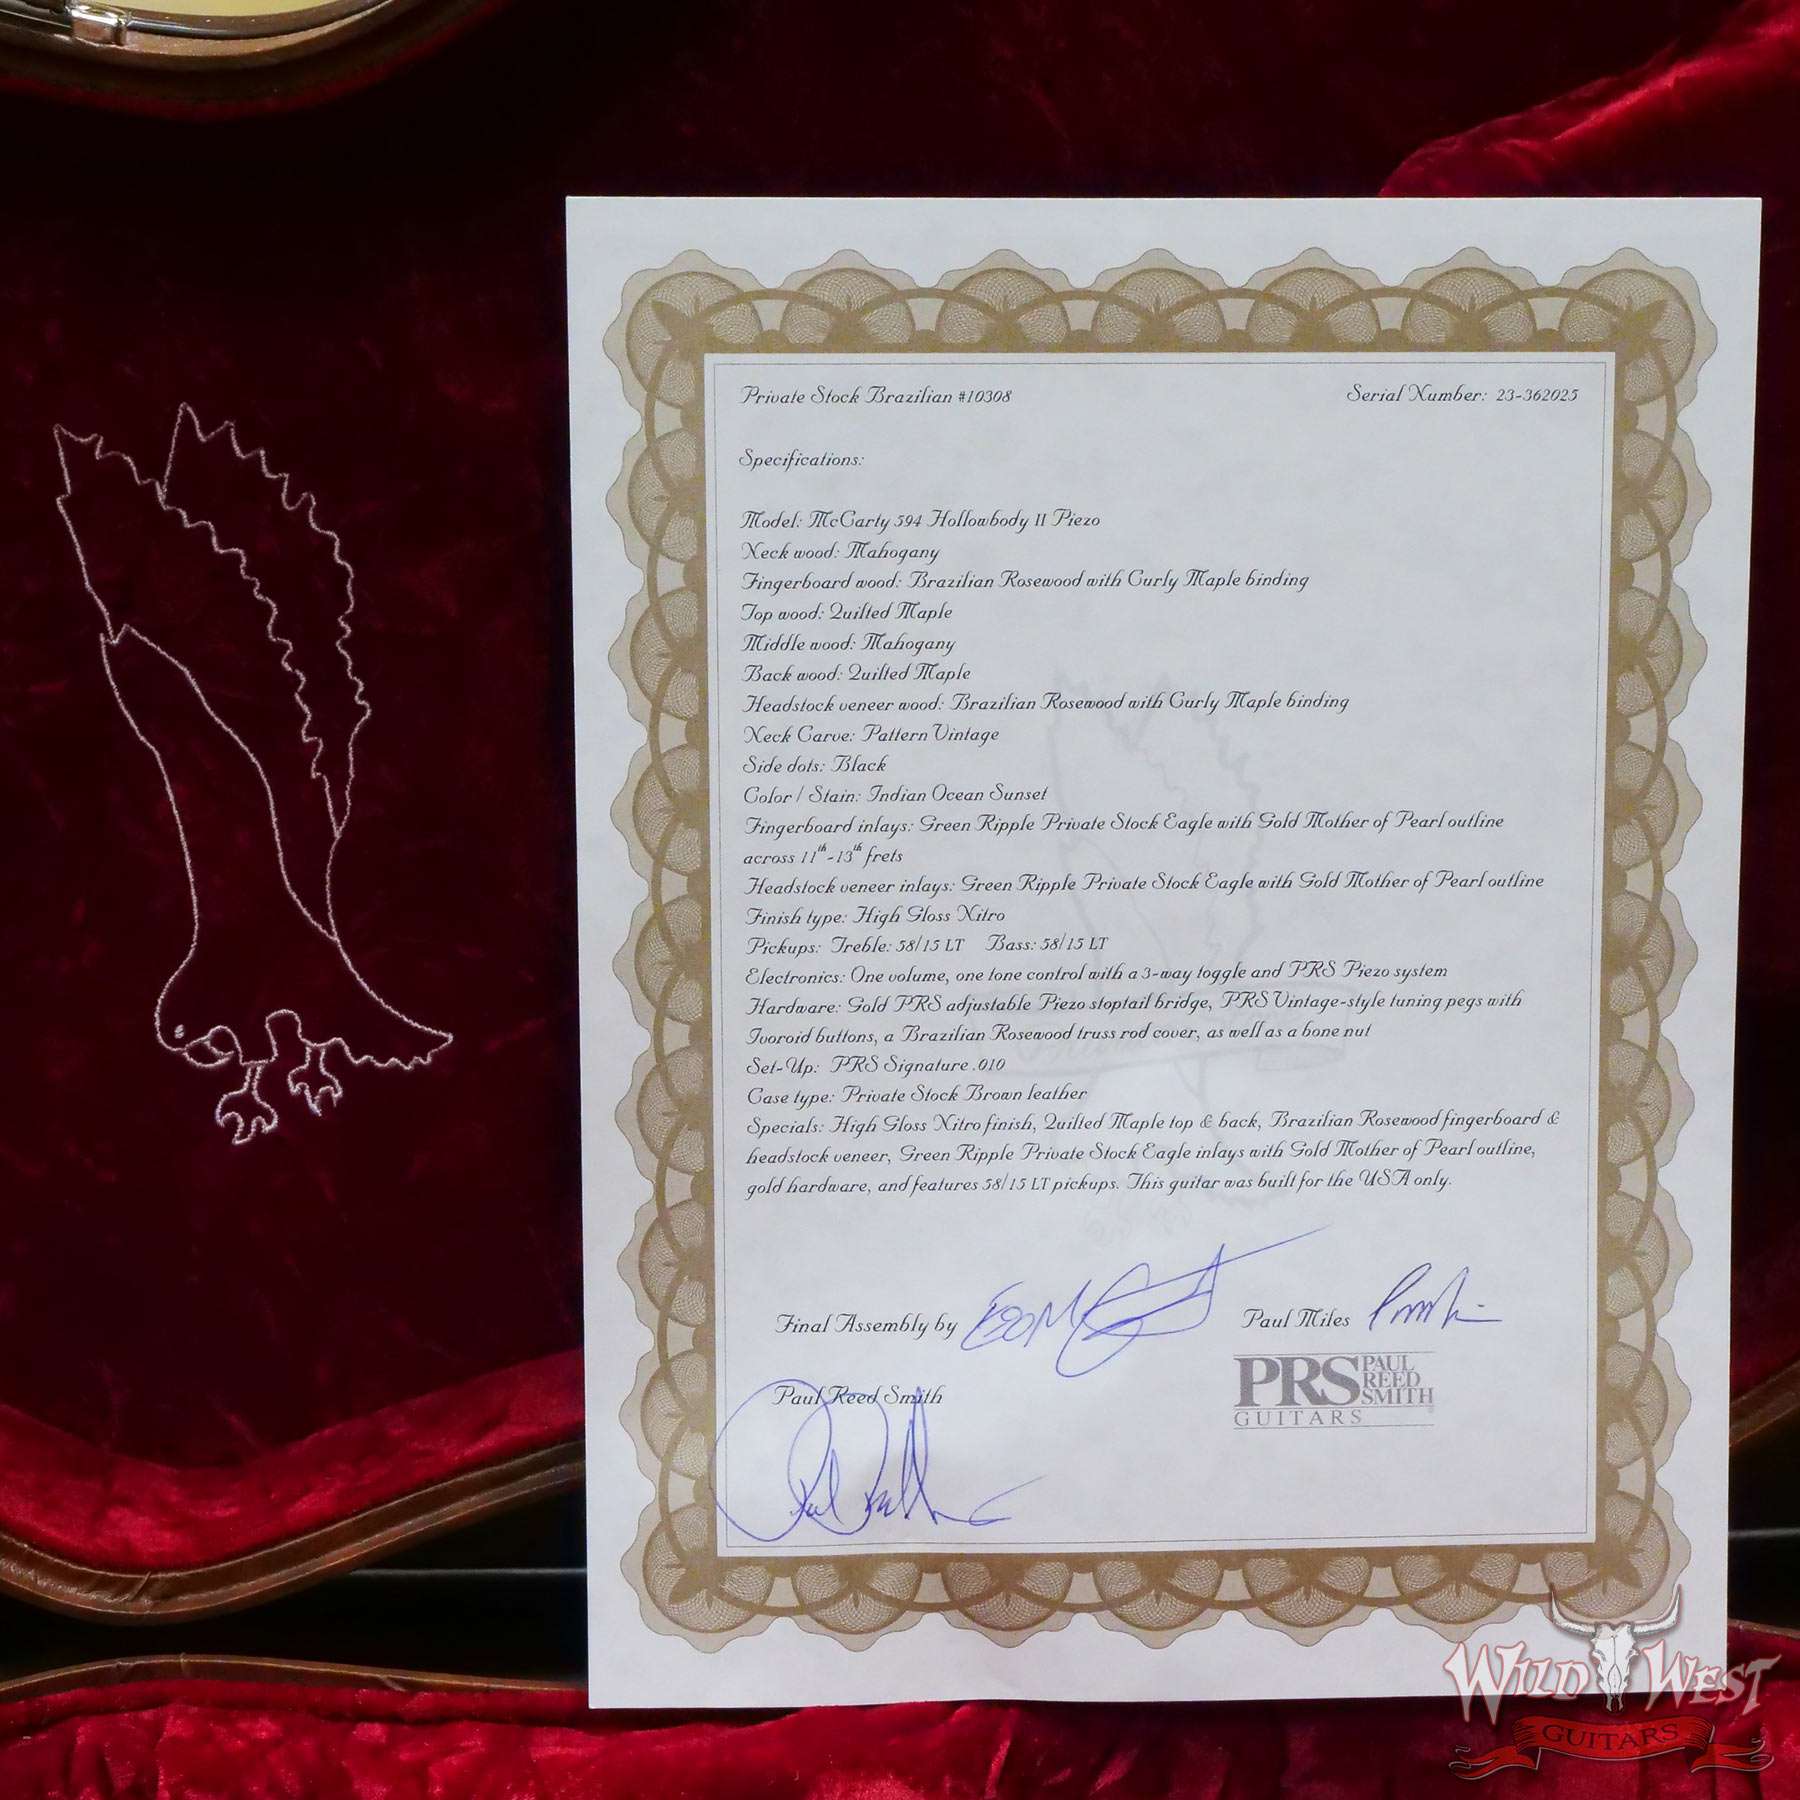 Private Stock Brazilian #10308 Serial Number: 23-362025
Specifications:
Model: McCarty 594 Hollowbody II Piezo
Neck wood: Mahogany
Fingerboard wood: Brazilian Rosewood with Curly Maple binding
Top wood: Quilted Maple
Middle wood: Mahogany
Back wood: Quilted Maple
Headstock veneer wood: Brazilian Rosewood with Curly Maple binding
Neck Carve: Pattern Vintage
Side dots: Black
Color / Stain: Indian Ocean Sunset
Fingerboard inlays: Green Ripple Private Stock Eagle with Gold Mother of Pearl outline
across 11th-13th frets
Headstock veneer inlays: Green Ripple Private Stock Eagle with Gold Mother of Pearl outline
Finish type: High Gloss Nitro
Pickups: Treble: 58/15 LT Bass: 58/15 LT
Electronics: One volume, one tone control with a 3-way toggle and PRS Piezo system
Hardware: Gold PRS adjustable Piezo stoptail bridge, PRS Vintage-style tuning pegs with
Ivoroid buttons, a Brazilian Rosewood truss rod cover, as well as a bone nut
Set-Up: PRS Signature .010
Case type: Private Stock Brown leather
Specials: High Gloss Nitro finish, Quilted Maple top & back, Brazilian Rosewood fingerboard &
headstock veneer, Green Ripple Private Stock Eagle inlays with Gold Mother of Pearl outline,
gold hardware, and features 58/15 LT pickups. This guitar was built for the USA only.
Final Assembly by Paul Miles
Paul Reed Smith
PRS PAUL
REED
SMITH
GUITARS
WILD WEST
GUITARS